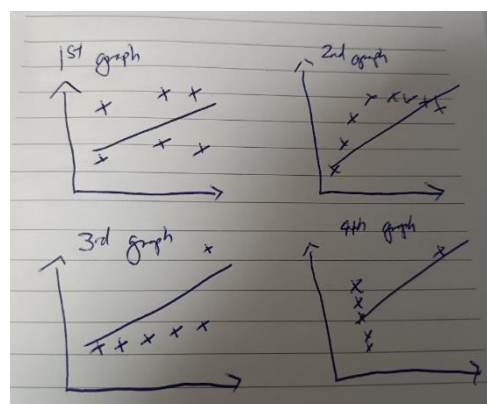 1st graph
2nd graph
3rd graph
4th graph